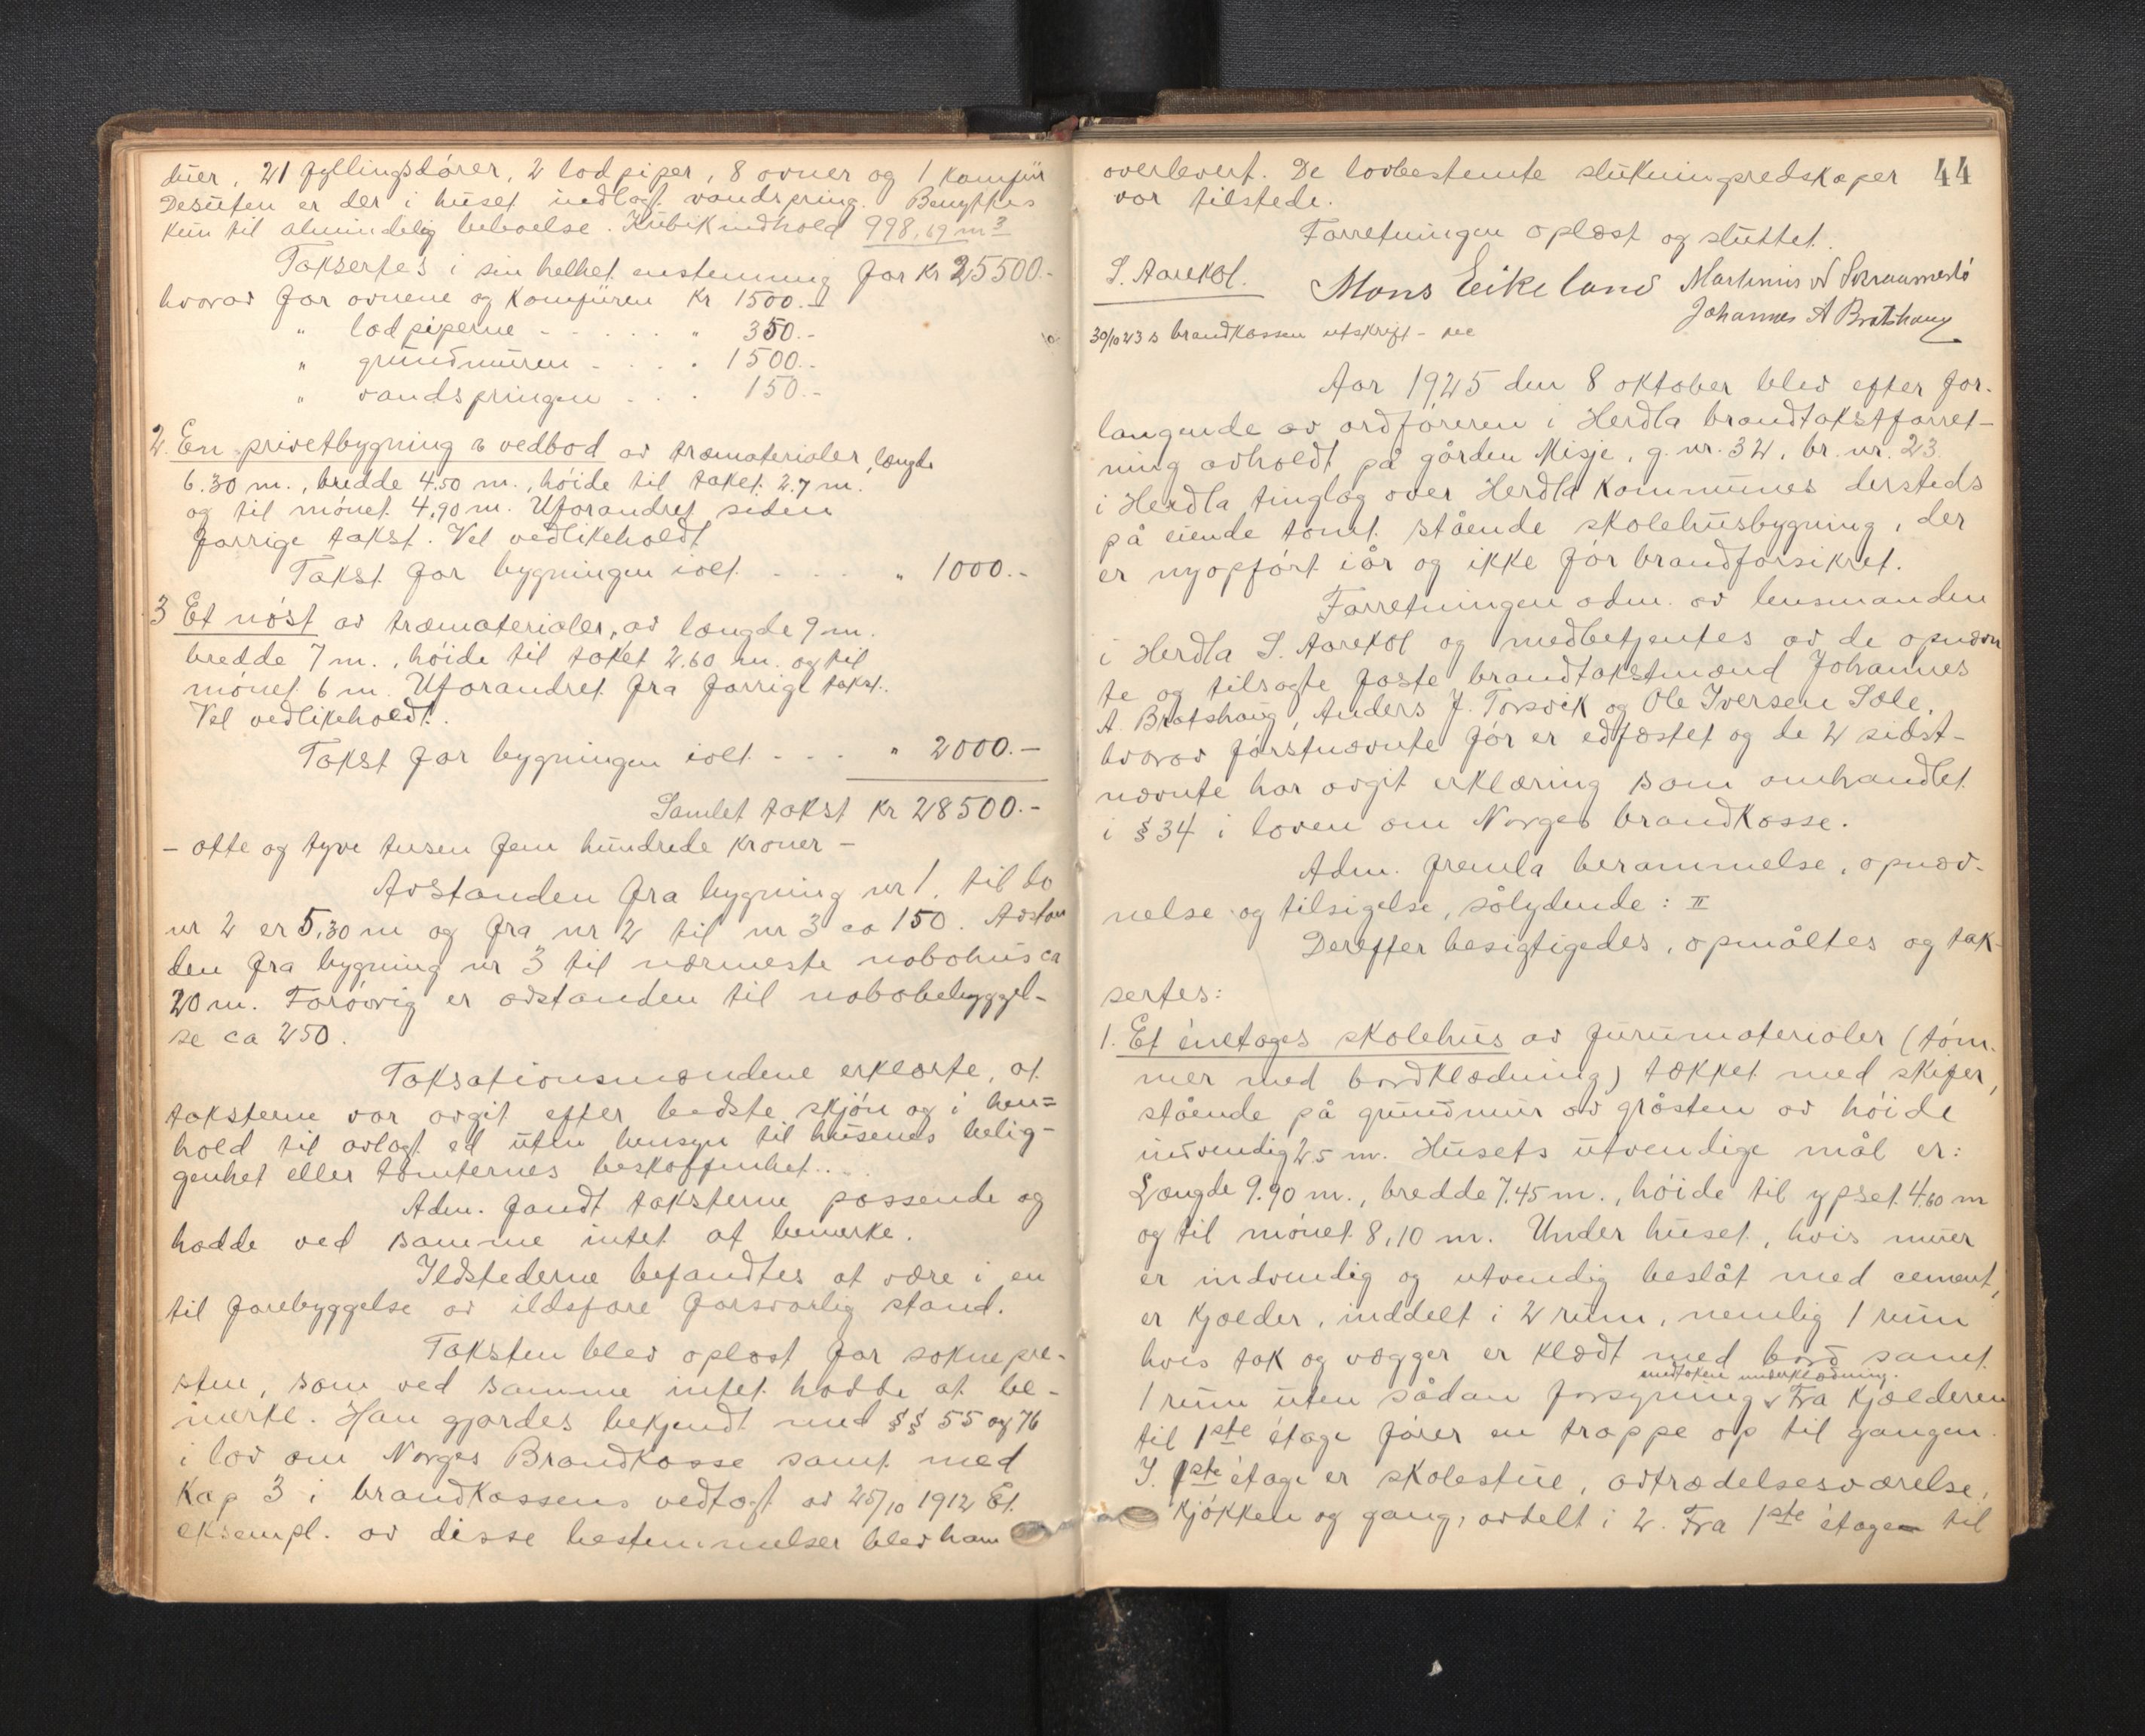 duer, 21 fyllingsdörer, 2 lodpiper, 8 ovner og 1 komfür
Desuten er der i huset indlagt vandspring. Benyttes
kun til almindelig beboelse. Kubikindhold 998,69 m3
Taksertes i sin helhet enstemmig for kr 25500.-
hvorav for ovnene og komfüren kr 1500.-
" lodpiperne - - - - - " 350.-
" grundmuren - - - . 1500.-
" vandspringen - - . 150.-
2. En privetbygning & vedbod av træmaterialer, længde
6.30 m., bredde 4.50 m., höide til taket 2.7 m.
og til mönet 4,90 m. Uforandret siden
forrige takst. Vel vedlikeholdt
Takst for bygningen ialt - - - " 1000.-
3 Et nöst av træmaterialer, av længde 9 m.
bredde 7 m., höide til taket 2.60 m. og til
mönet 6 m. Uforandret fra forrige takst.
Vel vedlikeholdt.
Takst for bygningen ialt - - - " 2000.-
Samlet takst kr 28500.-
- otte og tyve tusen fem hundrede kroner -
Avstanden fra bygning nr 1. til do
nr 2 er 5,30 m og fra nr 2 til nr 3 ca 150. Avstan
den fra bygning nr 3 til nærmeste nabohus ca
20 m. Forövrig er avstanden til nabobebyggel-
se ca 250.
Taksationsmændene erklærte, at
taksterne var avgit efter bedste skjön og i hen=
hold til avlagt ed uten hensyn til husenes belig-
genhet eller tomternes beskaffenhet.
Adm. fandt taksterne passende og
hadde ved samme intet at bemerke.
Ildstederne befandtes at være i en
til forebyggelse av ildsfare forsvarlig stand.
Taksten blev oplæst for sokнepre-
sten, som ved samme intet hadde at be-
merke. Han gjordes bekjendt med §§ 55 og 76
i lov om Norges Brandkasse samt med
Kap 3 i brandkassens vedtægt av 25/10 1912 Et
eksempl. av disse bestemmelser blev ham
44
overlevert. De lovbestemte slukningsredskaper
var tilstede.
Forretningen oplæst og sluttet.
S. Aarekol. Mons Eikeland
Johannes A Bratshaug
30/10 23 s brandkassen utskrift -
Aar 1925 den 8 oktober blev efter for-
langende av ordföreren i Herdla brandtakstforret-
ning avholdt på gården Misje, g. nr. 32, br. nr. 23
i Herdla tinglag over Herdla kommunes dersteds
på eiende tomt stående skolehusbygning, der
er nyopfört iår og ikke för brandforsikret.
Forretningen adm. av lensmanden
i Herdla S. Aarekol og medbetjentes av de opnævn
te og tilsagte faste brandtakstmænd Johannes
A. Bratshaug, Anders J. Torsvik og Ole Iversen Sæle,
hvorav förstnævnte för er edfæstet og de 2 sidst-
nævnte har avgit erklæring som omhandlet
i § 34 i loven om Norges brandkasse.
Adm. fremla berammelse, opnæv-
nelse og tilsigelse, sålydende: II
Derefter besigtigedes, opmåltes og tak-
sertes:
1. Et énetages skolehus av furumaterialer (töm-
mer med bordklædning) tækket med skifer,
stående på grundmur av gråsten av höide
indvendig 2.5 m. Husets utvendige mål er:
Længde 9.90 m., bredde 7.45 m., höide til ypset 4.60 m
og til mönet 8,10 m. Under huset, hvis murer
er indvendig og utvendig beslåt med cement,
er kjælder, inddelt i 2 rum, nemlig 1 rum
hvis tak og vægger er klædt med bord samt
1 rum uten sådan forsyning medtaken underklædning. Fra kjælderen
til 1ste étage förer en trappe op til gangen.
I. 1ste étage er skolestue, avtrædelsesværelse,
kjökken og gang, avdelt i 2. Fra 1ste étage til